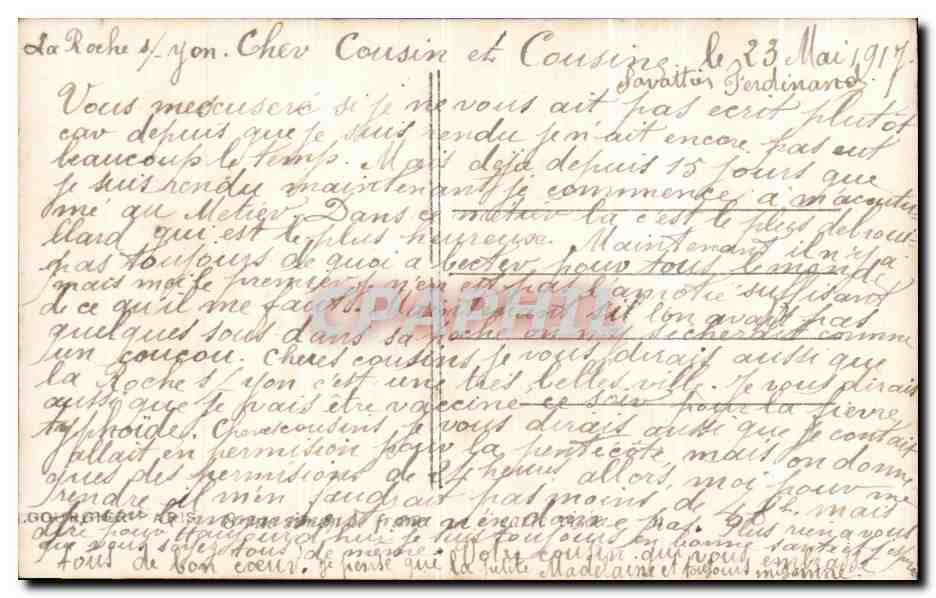 La Roche s/ yon. Cher Cousin et Cousine le 23 Mai 1917.
Savattier Ferdinand
Vous mescuseré si je ne vous ait pas ecrit plutot
car depuis que je suis rendu je n'ait encore pas eut
beaucoup le temp. Mais deja depuis 15 jours que
je suis rendu maintenant je commence à m'acoutu-
mé au Metier. Dans ce métier la c'est le plus debroui-
llard qui est le plus heureuse. Maintenant il n'y a
pas toujours de quoi a becter pour tous le monde
mais moi le premier je n'en est pas la motié suffisant
de ce qu'il me faut. si l'on avait pas
quelques sous dans sa poche on comme
un coucou. Cheres cousins je vous dirais aussi que
la Roche s/ yon c'est une très belles ville. Je vous dirais
aussi que je vais être vacciné ce soir pour la fievre
typhoïde. Cheres cousins je vous dirais aussi que je contait
allait en permision pour la pentecôte mais on donne
ques des permisions de 24 heures allors moi pour me
rendre il m'en faudrait pas moins de 48h mais
pas. plus rien a vous
dire pour aujourd'hui je suis toujours en bonne santé et j'espère
que vous soyez tous de meme. Votre cousin qui vous embrasse
tous de bon coeur. je pense que la petite Madelaine et toujours mignonne.
CPAPHIL